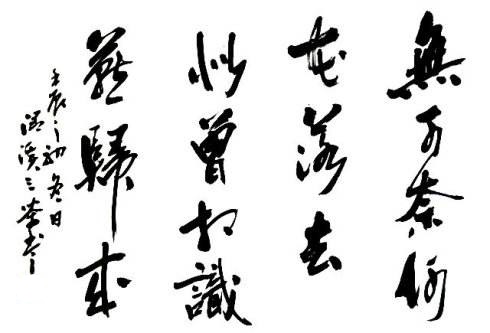 無可奈何
花落去
似曾相識
燕歸來
壬辰之初冬日
三 書